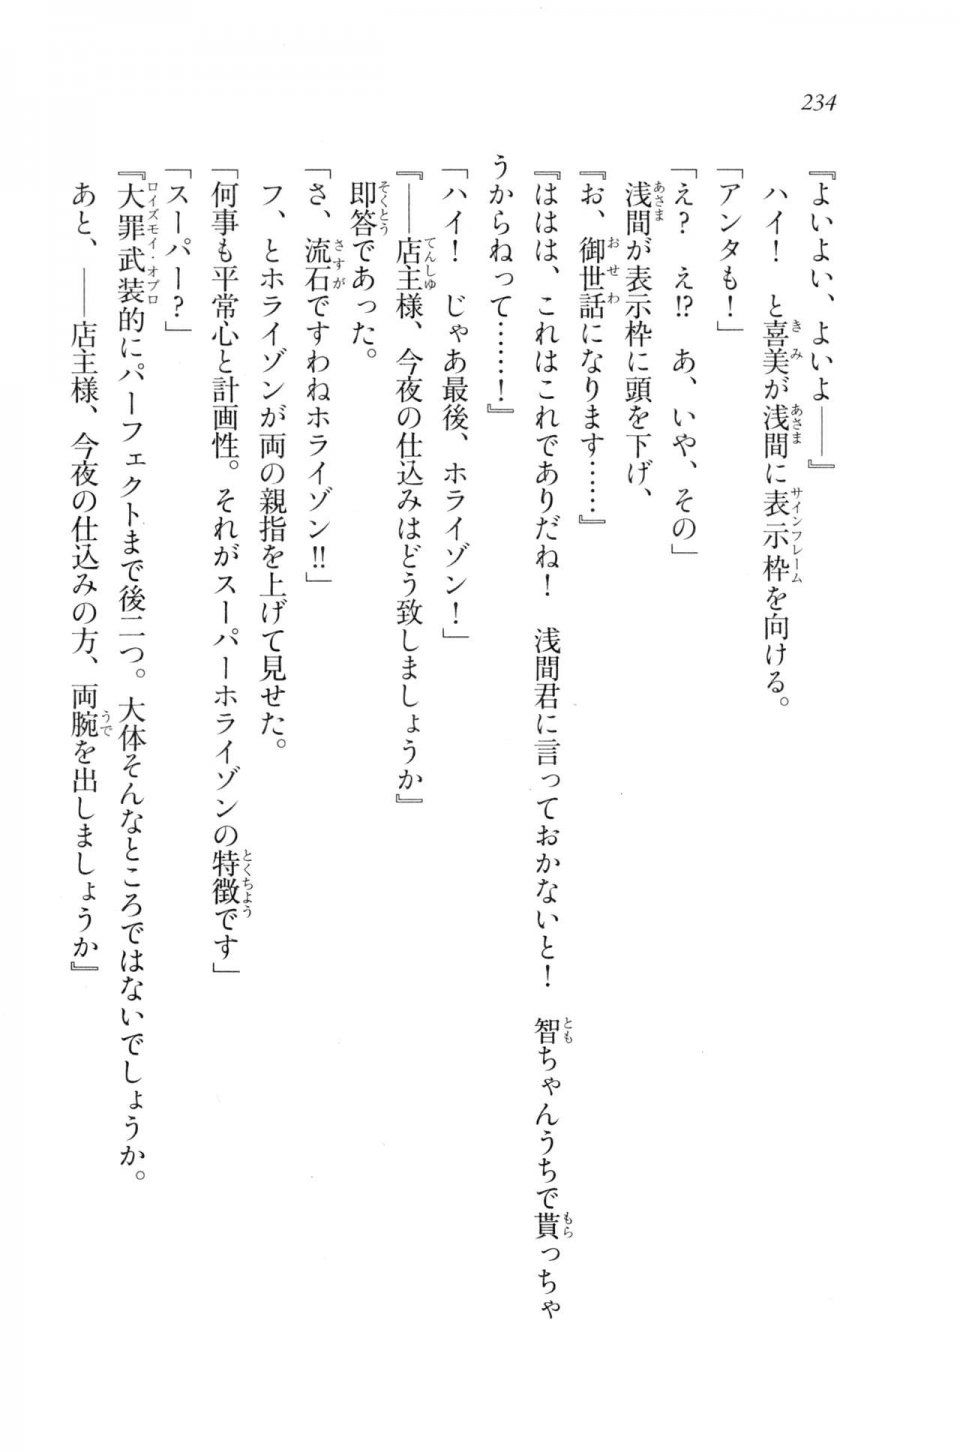 234
『よいよい、よいよ――』
ハイ！　と喜美が浅間に表示枠を向ける。
「アンタも！」
「え？　え!?　あ、いや、その」
浅間が表示枠に頭を下げ、
『お、御世話になります……』
『ははは、これはこれでありだね！　浅間君に言っておかないと！　智ちゃんうちで貰っちゃ
うからねって……！』
「ハイ！　じゃあ最後、ホライゾン！」
『――店主様、今夜の仕込みはどう致しましょうか』
即答であった。
「さ、流石ですわねホライゾン!!」
フ、とホライゾンが両の親指を上げて見せた。
「何事も平常心と計画性。それがスーパーホライゾンの特徴です」
「スーパー？」
『大罪武装的にパーフェクトまで後二つ。大体そんなところではないでしょうか。
あと、――店主様、今夜の仕込みの方、両腕を出しましょうか』